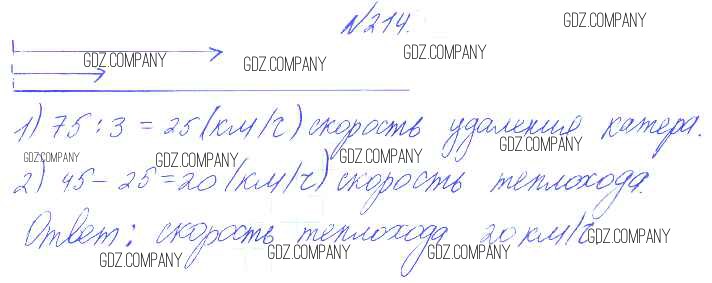 №214.
GDZ.COMPANY
GDZ.COMPANY
GDZ.COMPANY
1) 75 : 3 = 25 (км/ч) скорость удаления катера.
GDZ.COMPANY
GDZ.COMPANY
GDZ.COMPANY
GDZ.COMPANY
2) 45 - 25 = 20 (км/ч) скорость теплохода.
Ответ: скорость теплохода 20 км/ч
GDZ.COMPANY
GDZ.COMPANY
GDZ.COMPANY
GDZ.COMPANY